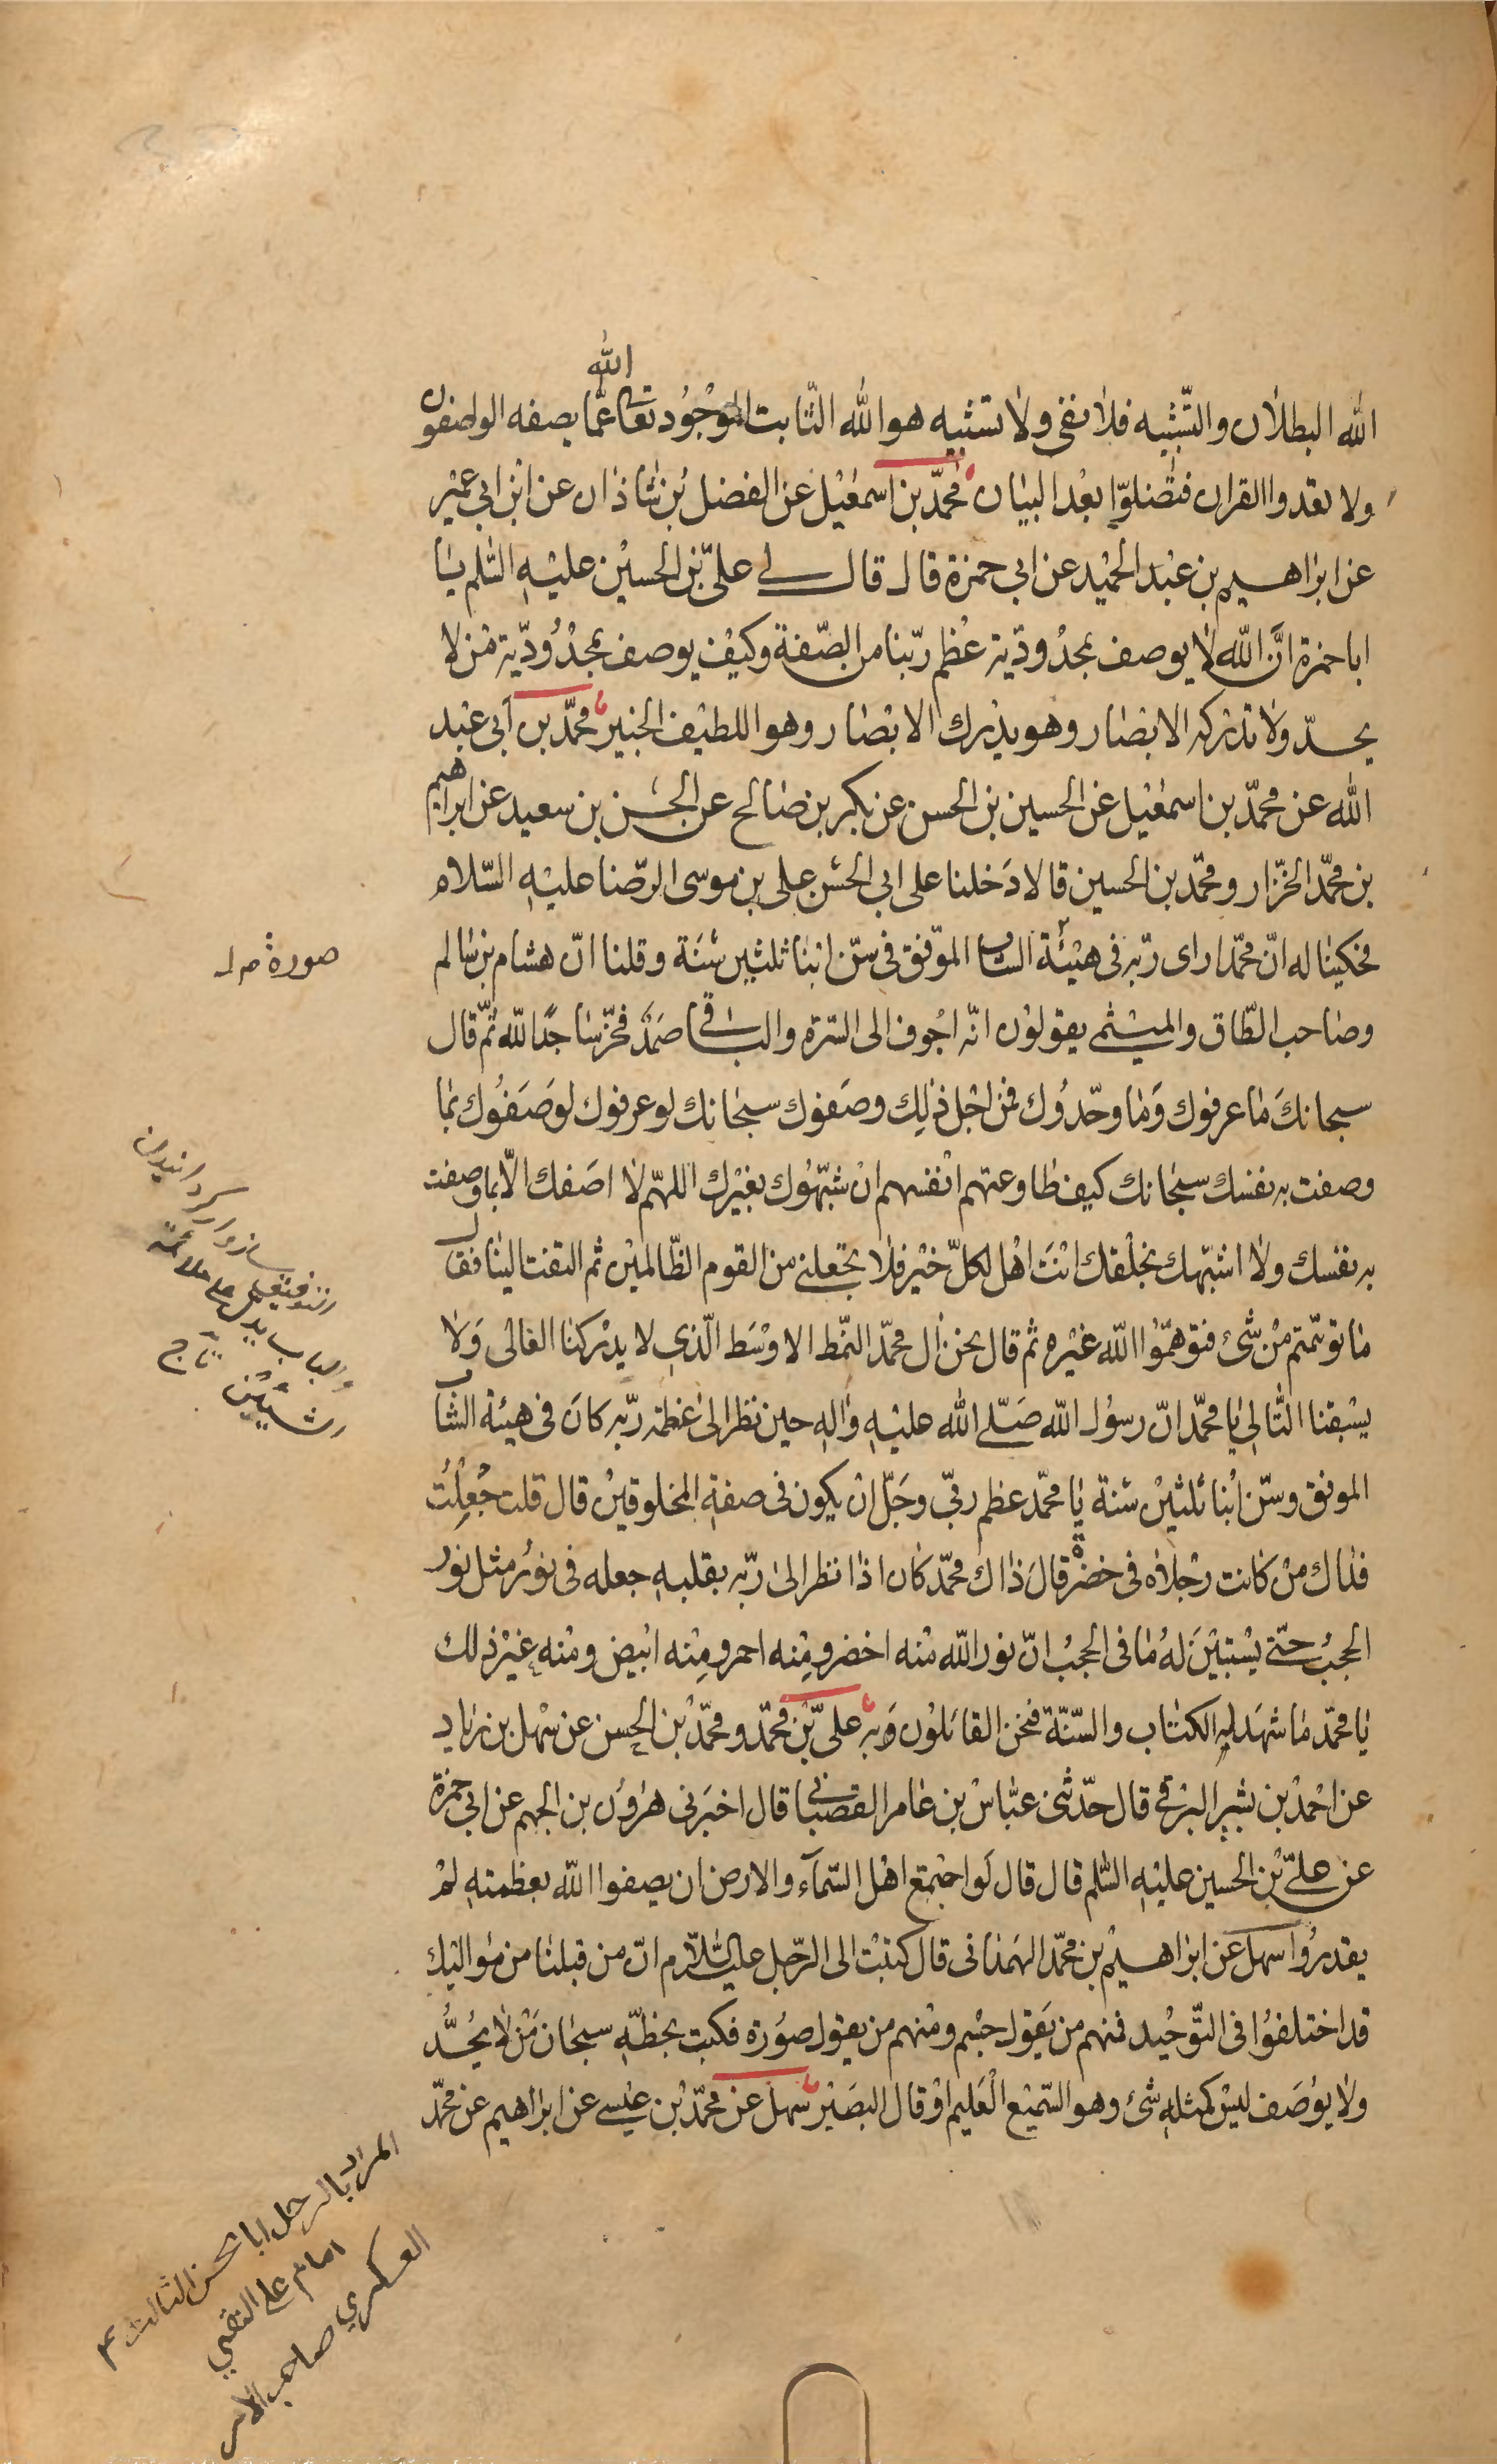 الله
الله البطلان والتّشبيه فلا نفى ولا تشبيه هو الله الثّابت الموجُود تعالى عمّا يصفه الواصفون
ولا تعدوا القران فتضلوّا بعْد البيان محمّد بن اسمعيْل عن الفضل بْن شاذان عن ابْن ابي عميْر
عن ابراهيم بن عبْد الحميْد عن ابي حمزة قال قال لي علىّ بْن الحسيْن عليْهِ السّلم يا
ابا حمزة انَّ اللّه لا يوصف بمحدُوديّة عظُم ربّنا من الصّفة وكيْف يوصف بمحْدُوُديّة مَنْ لا
يحدّ ولا تدْركه الابْصار وهو يدْرك الابْصار وهو اللطيْف الخبيْر محمّد بن أبى عبْد
الله عن محمّد بن اسمعْيل عن الحسين بن الحسن عن بكر بن صالح عن الحسَن بن سعيد عن ابراهيم
بن محمّد الخزّار ومحمّد بن الحسين قالا دَخلنا على ابي الحسَن على بن موسى الرّضا عليْهِ السّلام
فحكيْنا له انّ محمّدا راى ربّه فى هيْئة الشاب الموّفق فى سنّ ابْنا ثلثين سَنَة وقلنا انّ هشام بن سالم
صورة م ل
وصاحب الطّاق والميْثمى يقولوُن انّه اجْوف الى السّرة والباقى صَمَدٌ فخرّ ساجدًا للّه ثمّ قال
سبحانكَ مَا عرفوك وَمَا وحّدوُك فمن اجْل ذلِك وصَفوك سبحَانك لو عرفوك لوَصَفوُك بمَا
وصفت به نفسك سبحَانك كيف طاوعتهم انْفسهم انْ شبّهوُك بغيْرك اللهمّ لا اصَفك الّا بما وصفت
به نفسك ولا اشبّهك بخلْقك انْتَ اهْل لكلّ خيْر فلا تجْعلنى من القوم الظّالميْن ثم التفت اليْنا فقال
ما توهّمتم مْن شئ فتوهمّوا اللّه غيْره ثم قال نحن آل محمّد النّمط الاوْسَط الّذي لا يدْركنا الغالى وَلا
يسْبقنا التّالى يا محمّد انّ رسوُل اللّه صَلّى الله عليْهِ والهِ حين نظر الى عَظمة ربّه كانَ فى هيئة الشّاب
الموفق وسنّ ابْنا ثلثيْن سَنة يا محمّد عظم ربّي وجَلّ انْ يكون فى صفةِ المخلوقيْن قال قلت جُعلْتُ
فداك منْ كانت رجْلاه فى خضرة قالَ ذاك محمّد كان اذا نظر الى ربّه بقلبهِ جعله فى نوُر مثل نور
الحجُب حتّى يسْتبيْنَ لهُ مَا فى الحجُب انّ نور اللّه منْه اخضر ومِنْه احمر ومِنْه ابْيض ومنْه غيْر ذلك
يا محمّد مَا شهَد له الكتاب والسّنّة فنحن القائلوُن به علىّ بْن محمّد ومحمّد بْن الحسن عن سْهل بن زياد
عن احْمد بْن بشير البرْقى قال حدّثنى عبّاس بن عامر القصبانى قال اخبَرنى هارون بن الجهم عن ابى حمزة
عن علىّ بْن الحسين عليْهِ السّلم قال قال لَو اجْتمع اهْل السّمآء والارض ان يصفوا اللّه بعظمتهِ لمْ
يقدروُا سهل عن ابْراهيْم بن محمّد الهمَذانى قال كتبْت الى الرّجل عليه السّلام انّ من قبلنا من مَواليك
قد اختلفوُا فى التّوحيْد فمنهم من يَقول جسْم ومنْهم من يقول صوُرة فكتب بخطّهِ سبحَان مَنْ لا يُحَدُّ
ولا يوْصَف ليْسَ كمثلهِ شئ وهو السّميْع الْعَليم اوْ قال البصَيْر سهل عن محمّد بْن عيْسى عن ابراهيم عن محمّد
المراد بالرجل ابا الحسن الثالث ع
امام على التقي
العسكري صاحب الامر